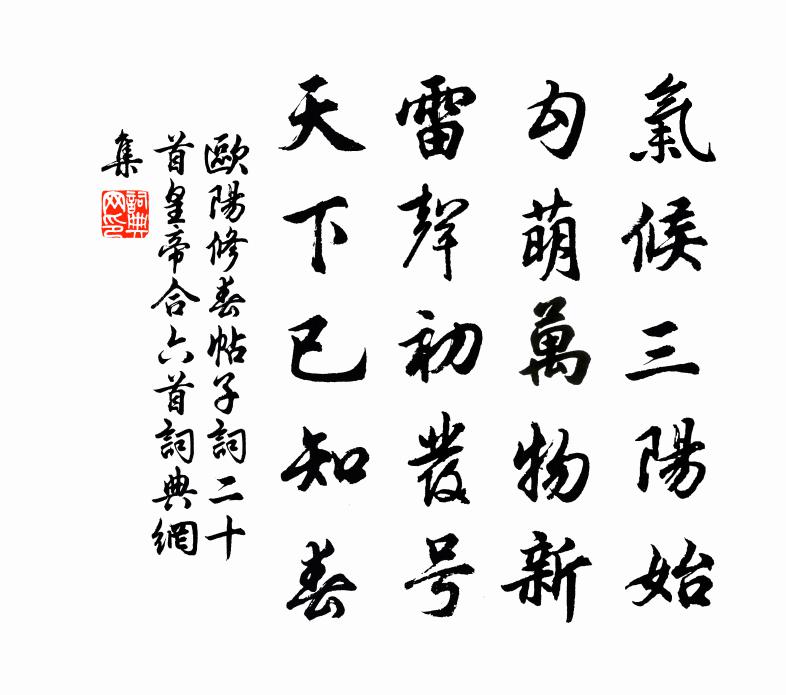 氣候三陽始
勾萌萬物新
雷聲初發号
天下已知春
歐陽修春帖子詞二十
首皇帝合六首詞典網
集
詞典
网印